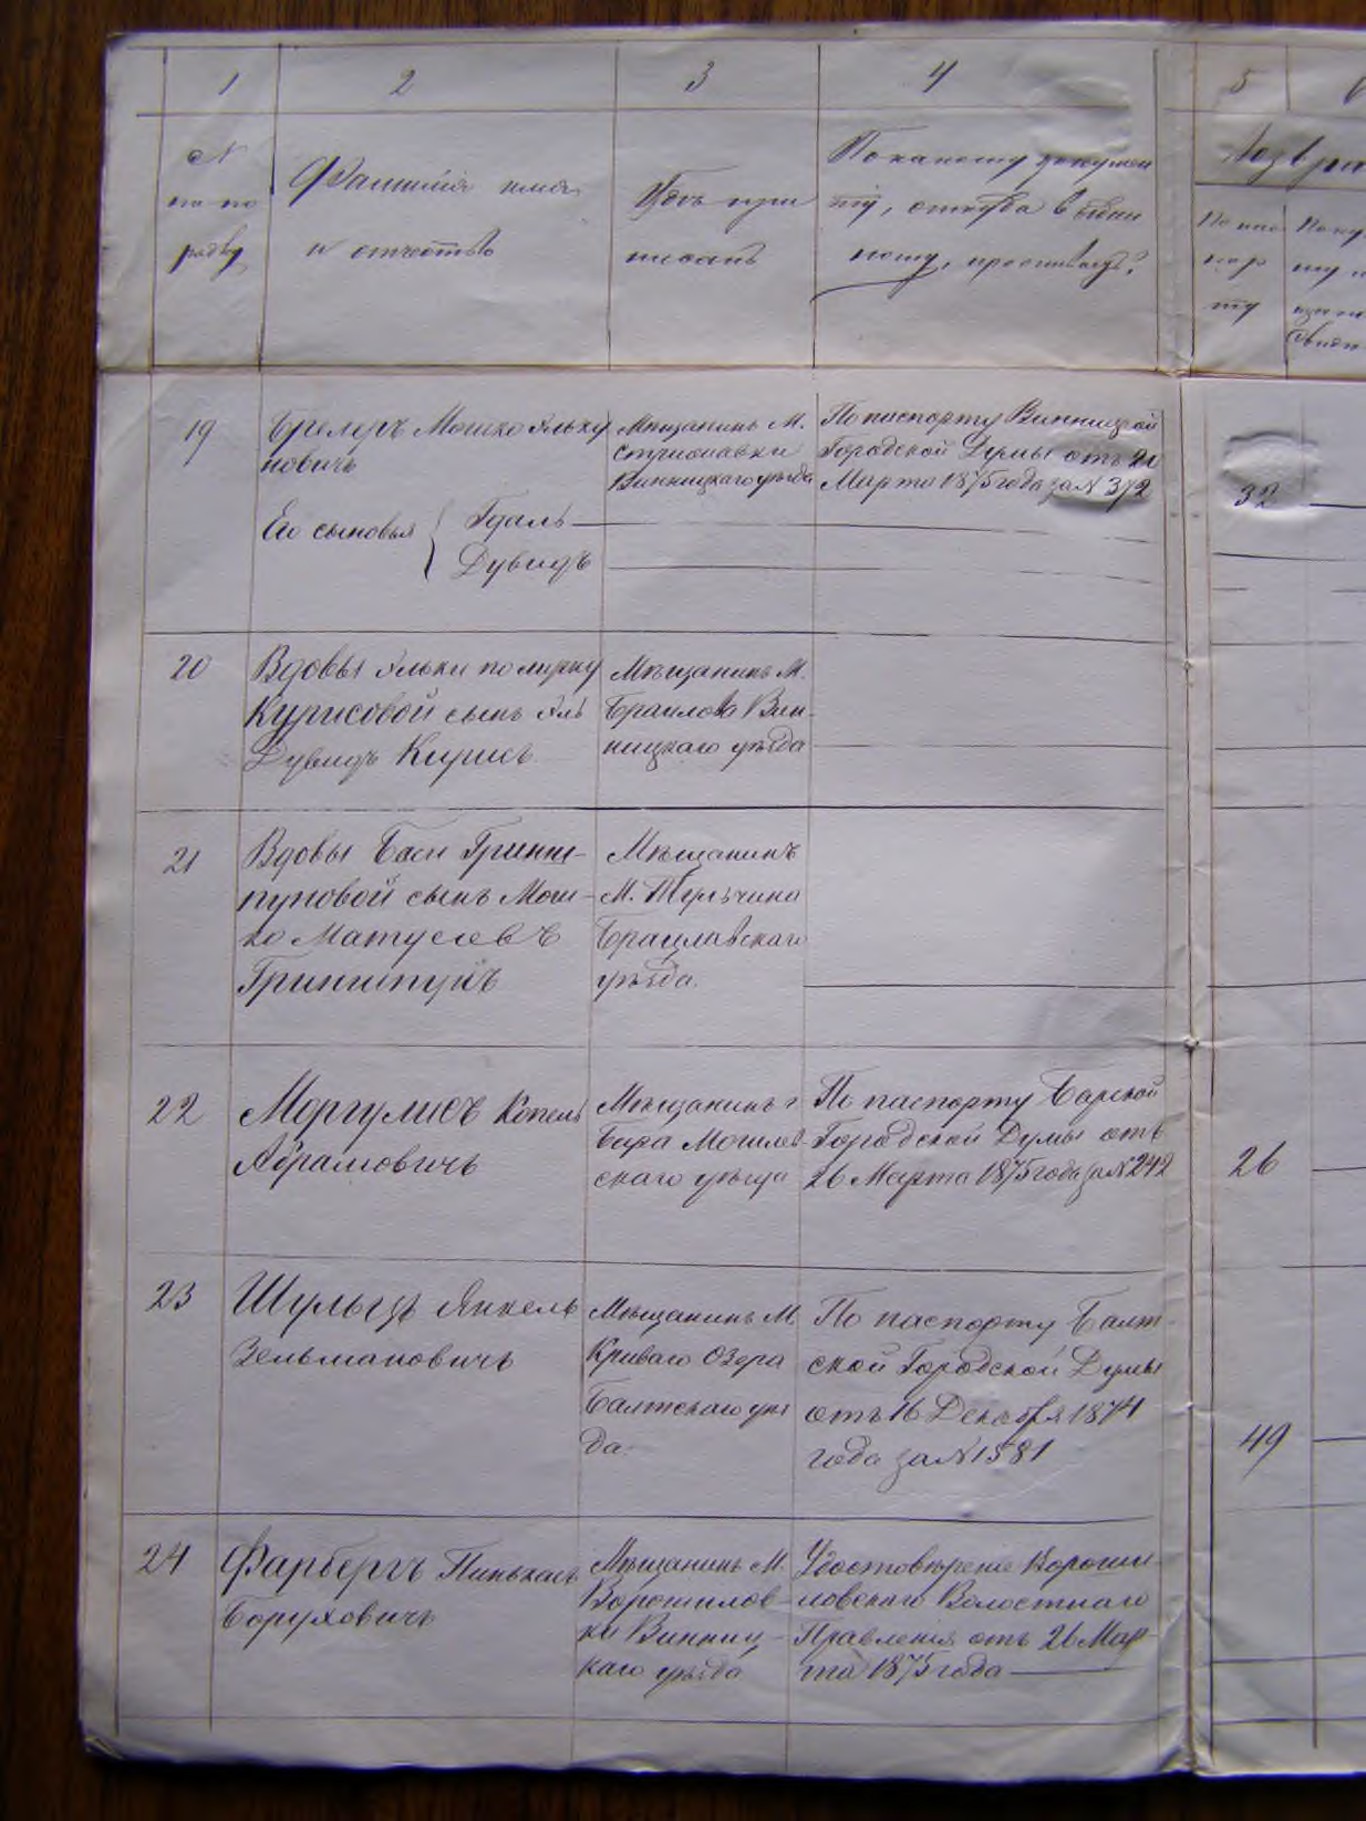 1 2 3 4 5
№ по по рядку
Фамилія имя и отчество
Гдѣ при писанъ
По какому докумен ту, откуда выдан ному, проживаетъ?
Возра
По пас пор ту
19
Брелеръ Мошко Эльку
новичъ
Его сыновья
Гдаль
Дувидъ
Мѣщанинъ М.
Стрижавки
Винницкаго уѣзда
По паспорту Винницкой
Городской Думы отъ 20
Марта 1875 года за № 372
32
20
Вдовы Эльки по мужу
Курисовой сынъ Эль
Дувидъ Курисъ
Мѣщанинъ М.
Браилова Вин-
ницкаго уѣзда
21
Вдовы Баси Гринш-
пуновой сынъ Мош-
ко Матусевъ
Гриншпунъ
Мѣщанинъ
М. Тульчина
Брацлавскаго
уѣзда.
22
Моргулисъ Копель
Абрамовичъ
Мѣщанинъ г
Бара Могилев-
скаго уѣзда
По паспорту Барской
Городской Думы отъ
26 Марта 1875 года за № 242
26
23
Шульцъ Янкель
Зельмановичъ
Мѣщанинъ М.
Криваго Озера
Балтскаго уѣз
да.
По паспорту Балт-
ской Городской Думы
отъ 16 Декабря 1874
года за № 1581
49
24
Фарберъ Пинькасъ
Боруховичъ
Мѣщанинъ М.
Ворошилов-
ки Винниц-
каго уѣзда
Удостовѣреніе Вороши-
ловскаго Волостнаго
Правленія отъ 26 Мар-
та 1875 года